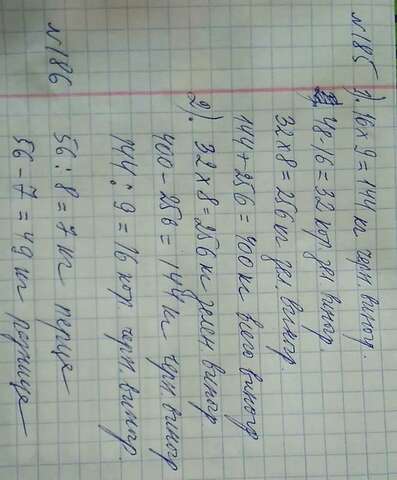 №185 1). 16 × 9 = 144 кг чрн. виногр.
48 - 16 = 32 кор зел. виногр.
32 × 8 = 256 кг зел. виногр.
144 + 256 = 400 кг всего виногр
2). 32 × 8 = 256 кг зелен виногр
400 - 256 = 144 кг чрн. виногр
144 : 9 = 16 кор. чрн. виногр.
№186
56 : 8 = 7 кг перца
56 - 7 = 49 кг